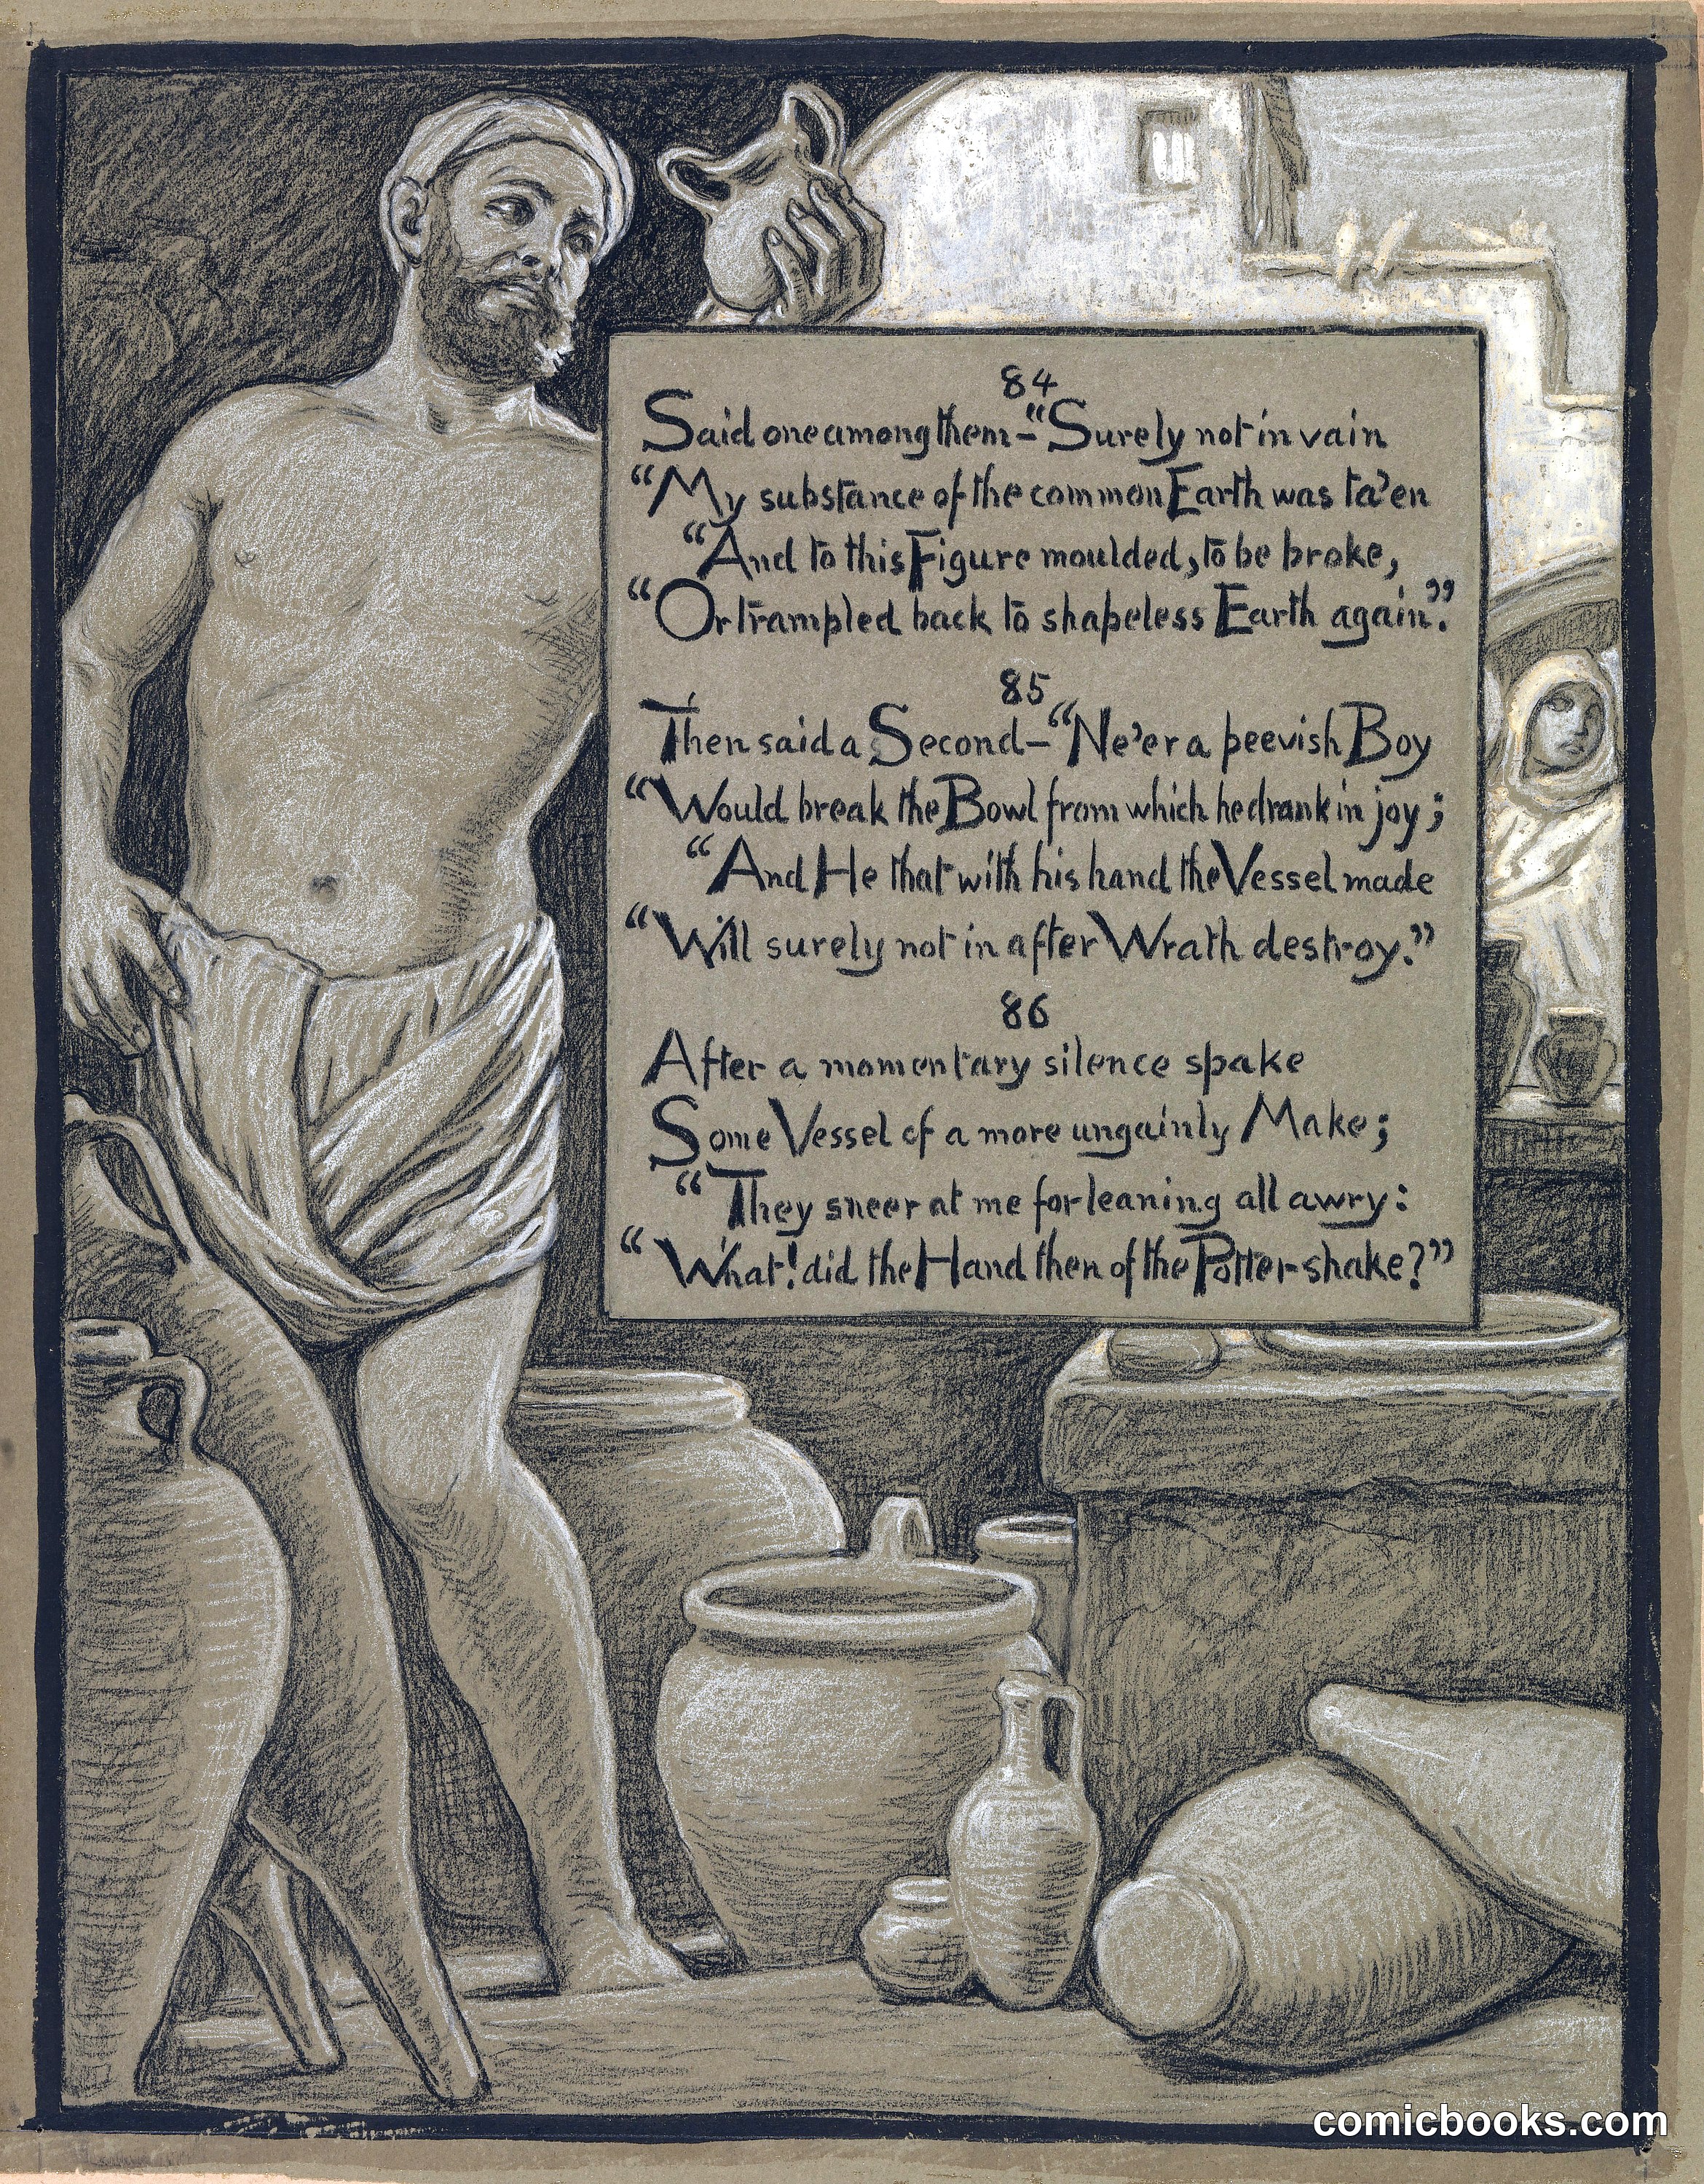 84
Said one among them—"Surely not in vain
"My substance of the common Earth was ta'en
"And to this Figure moulded, to be broke,
"Or trampled back to shapeless Earth again."
85
Then said a Second—"Ne'er a peevish Boy
"Would break the Bowl from which he drank in joy;
"And He that with his hand the Vessel made
"Will surely not in after Wrath destroy."
86
After a momentary silence spake
Some Vessel of a more ungainly Make;
"They sneer at me for leaning all awry:
"What! did the Hand then of the Potter shake?"
comicbooks.com